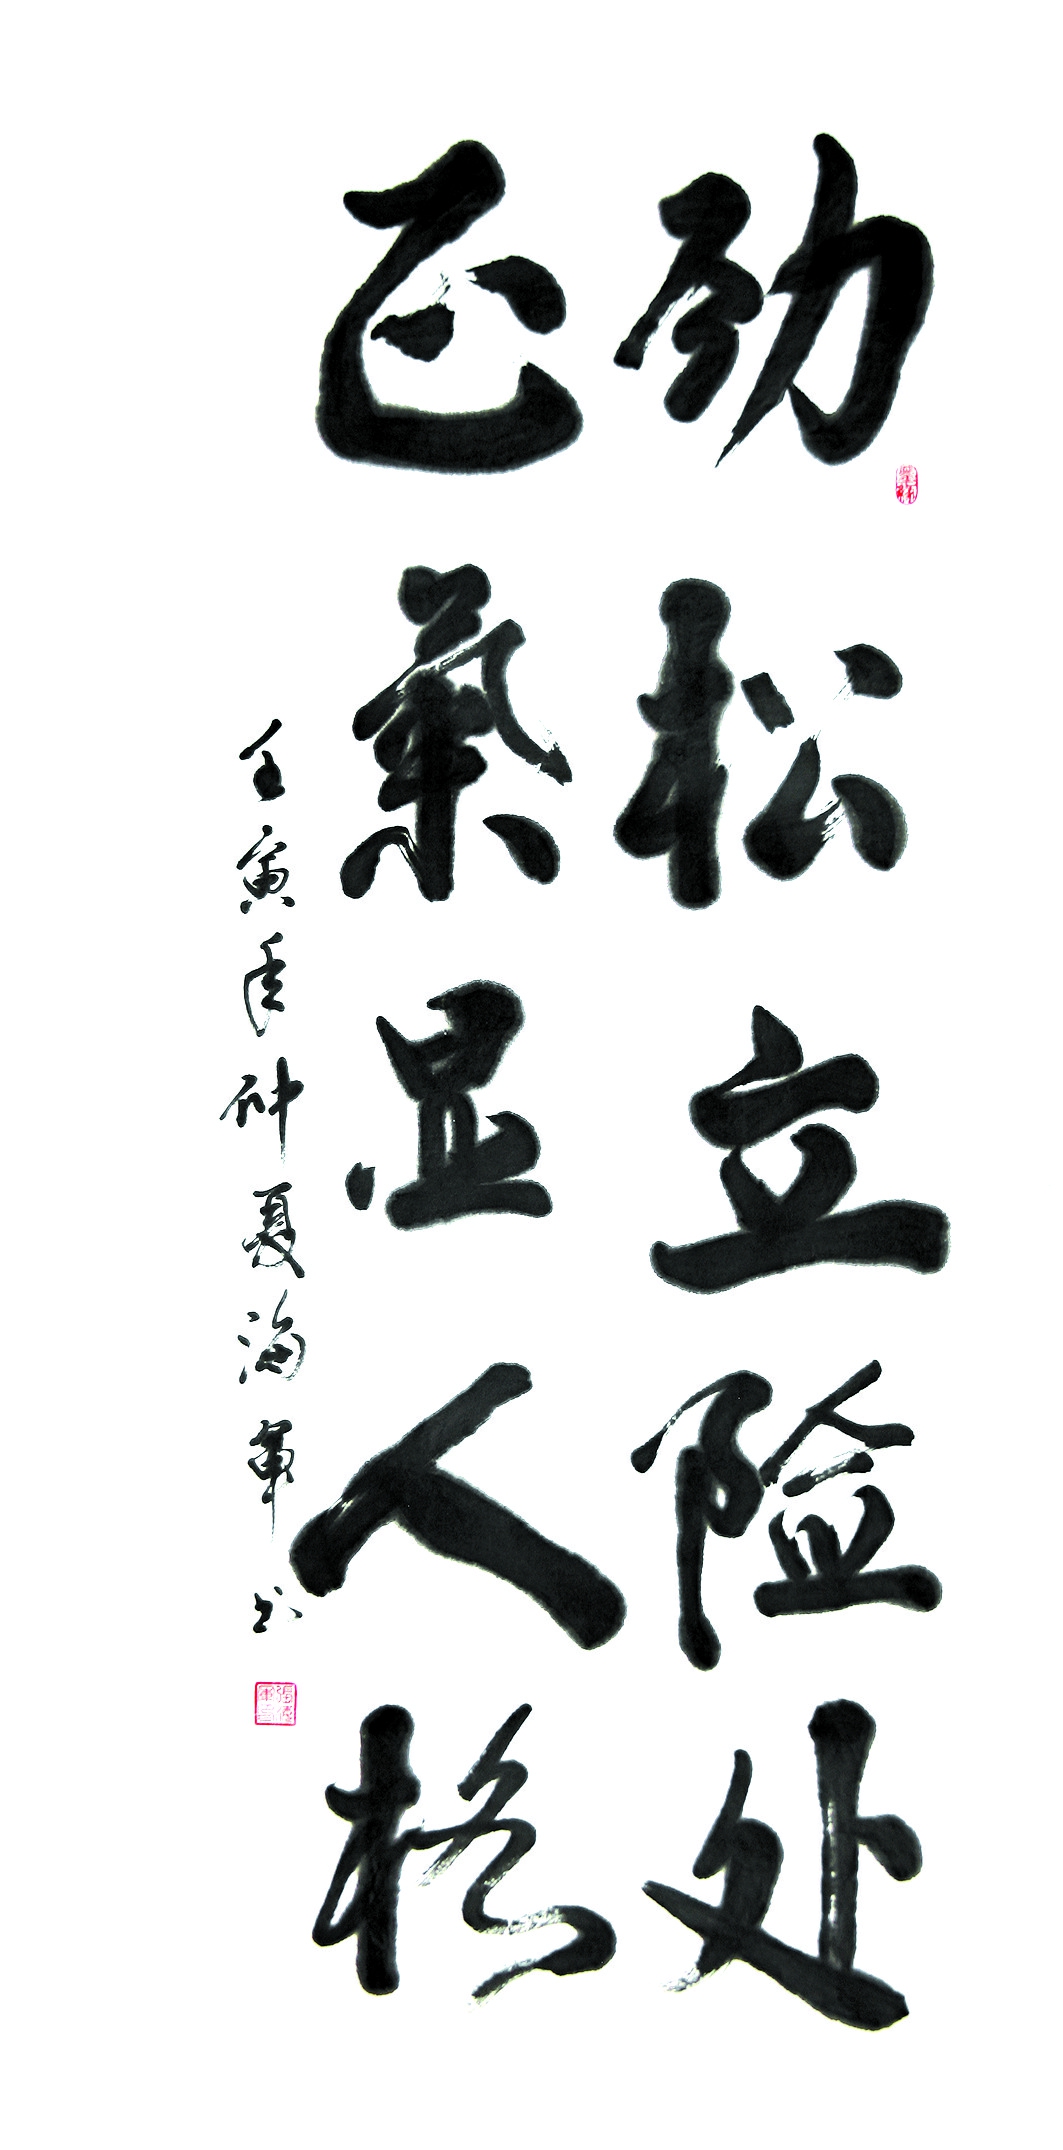 劲松立险处
正氣显人格
壬寅年仲夏海军书